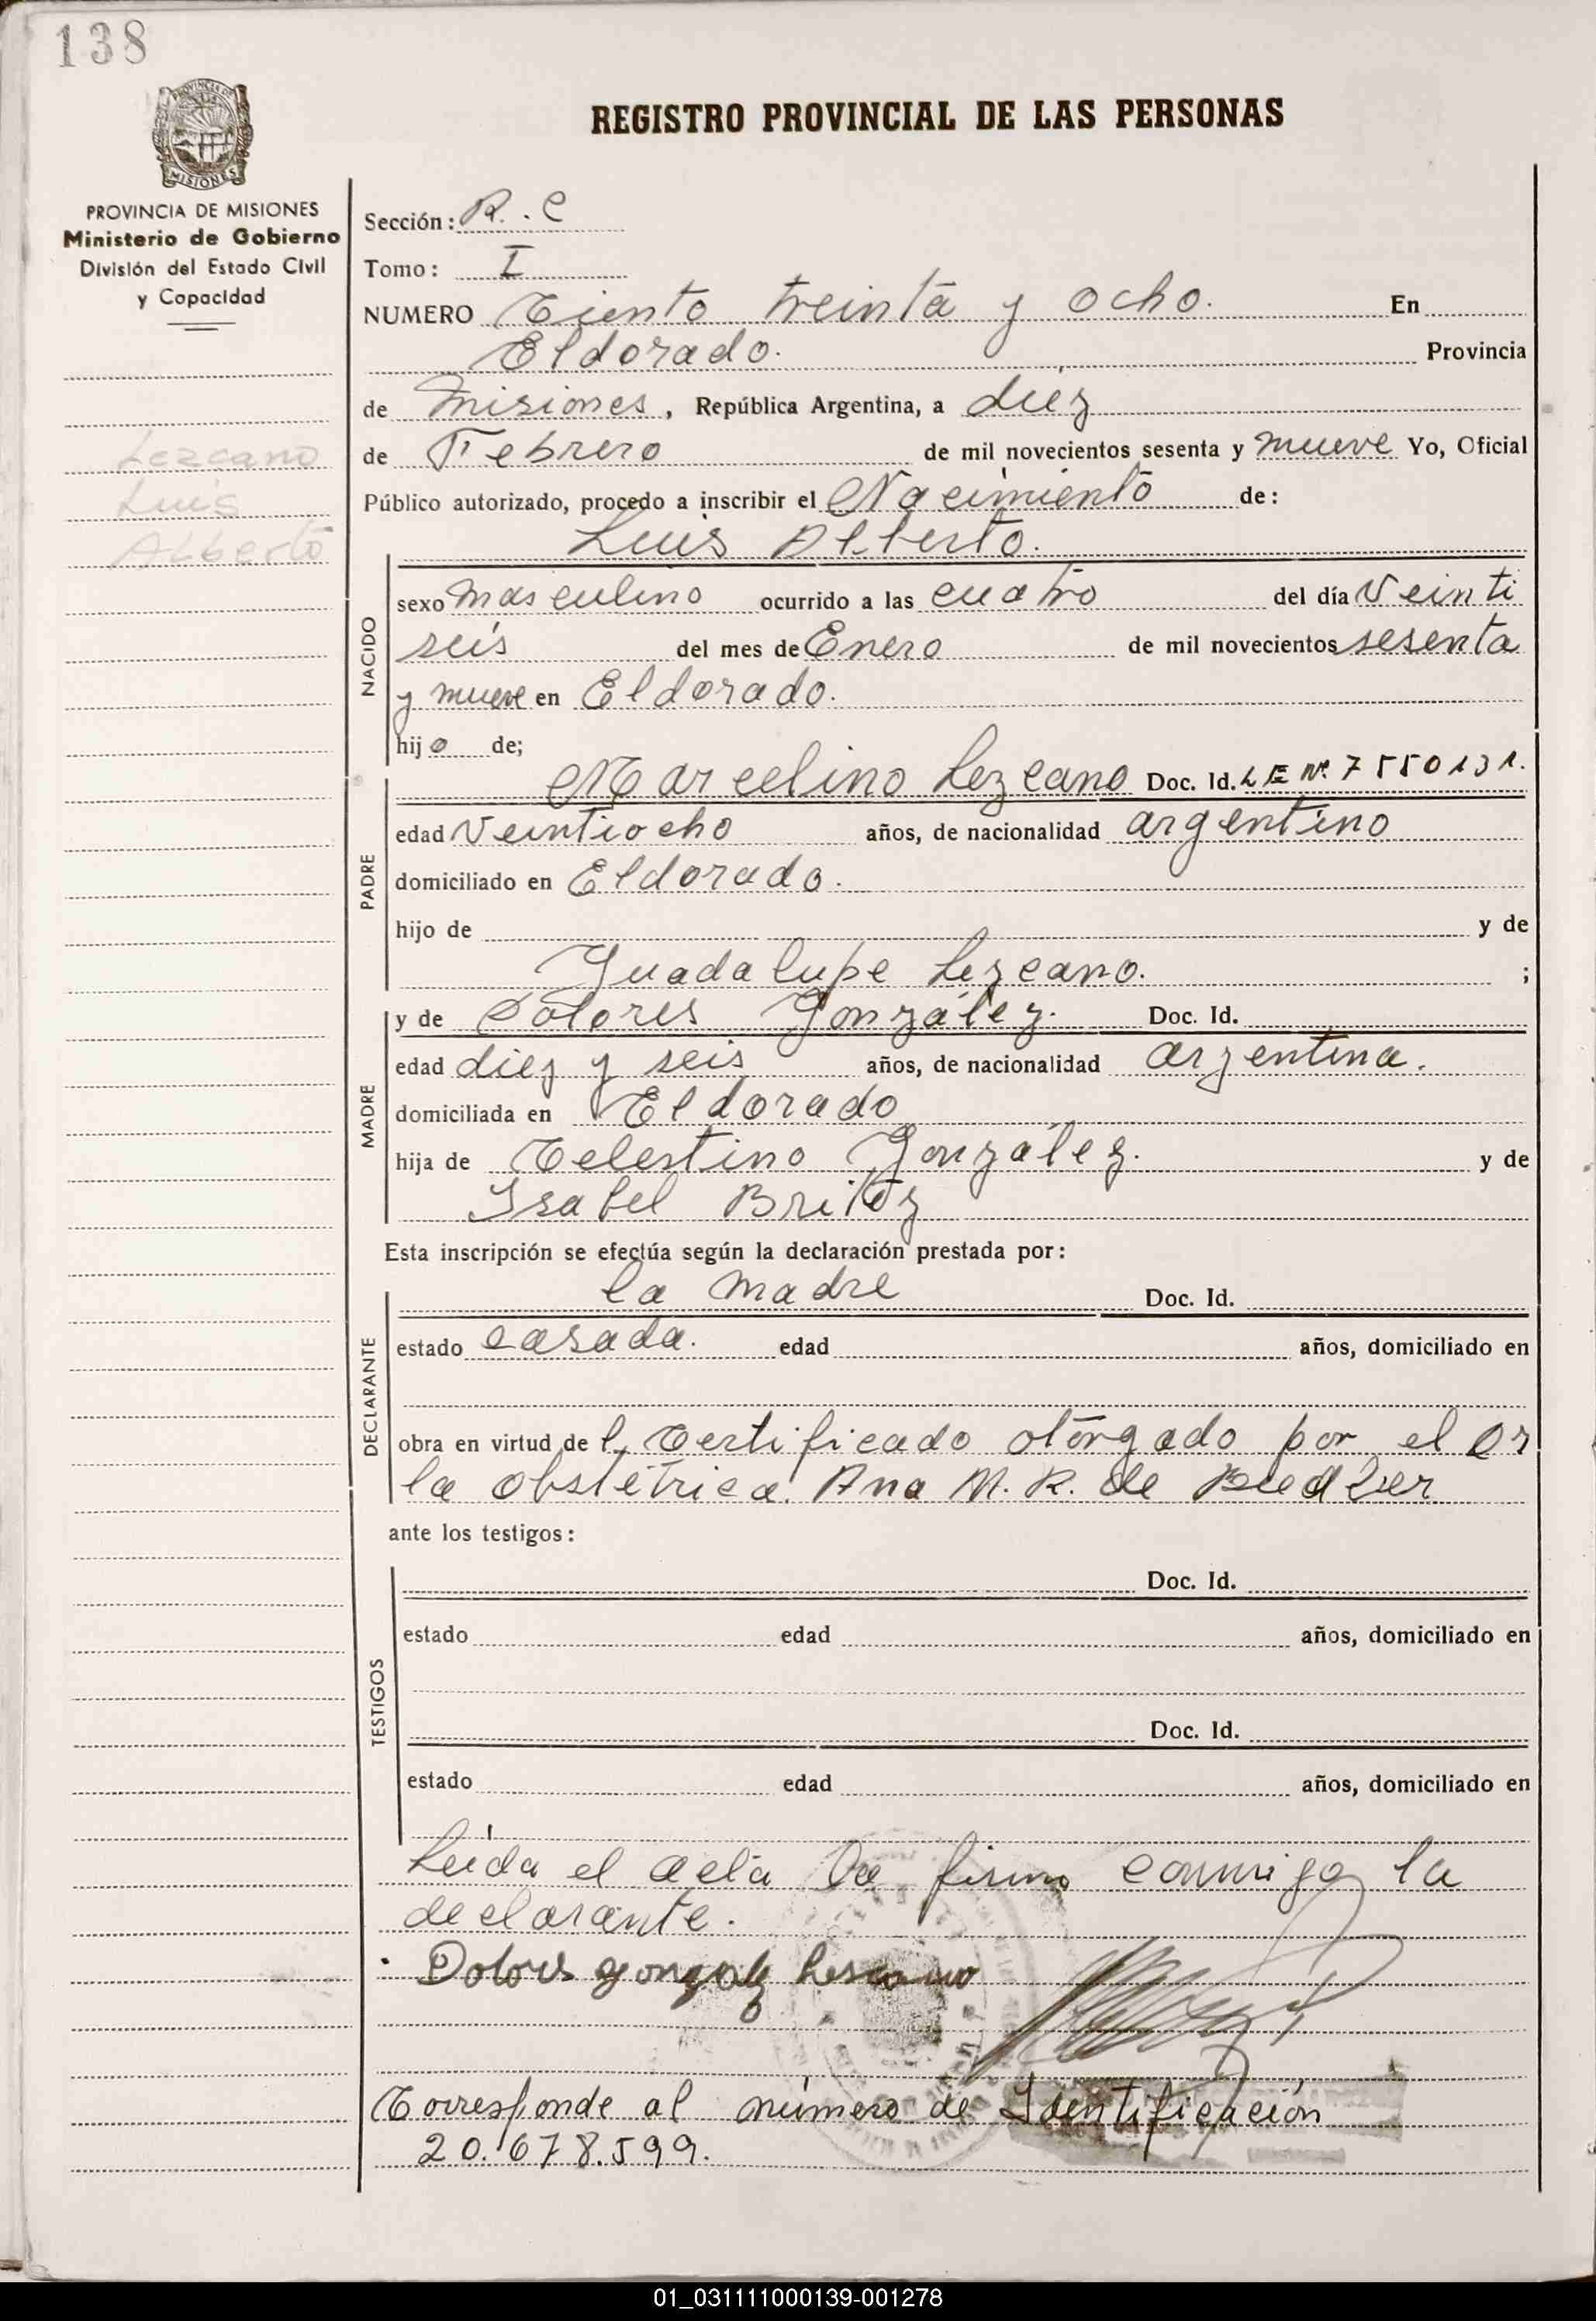 138
PROVINCIA DE MISIONES
MISIONES
PROVINCIA DE MISIONES
Ministerio de Gobierno
División del Estado Civil
y Capacidad
Lezcano
Luis
Alberto
REGISTRO PROVINCIAL DE LAS PERSONAS
Sección: R. C
Tomo: I
NUMERO Ciento treinta y ocho. En
Eldorado. Provincia
de Misiones, República Argentina, a diez
de Febrero de mil novecientos sesenta y nueve Yo, Oficial
Público autorizado, procedo a inscribir el Nacimiento de:
Luis Alberto.
NACIDO
sexo masculino ocurrido a las cuatro del día Veinti
seis del mes de Enero de mil novecientos sesenta
y nueve en Eldorado.
hijo de;
PADRE
Marcelino Lezcano Doc. Id. LE Nº 7550131.
edad Veintiocho años, de nacionalidad argentino
domiciliado en Eldorado.
hijo de y de
Guadalupe Lezcano. ;
MADRE
y de Dolores González. Doc. Id.
edad diez y seis años, de nacionalidad argentina.
domiciliada en Eldorado
hija de Celestino González. y de
Isabel Britez
Esta inscripción se efectúa según la declaración prestada por:
DECLARANTE
la madre Doc. Id.
estado casada. edad años, domiciliado en
obra en virtud del Certificado otorgado por el Dr
la obstétrica. Ana M. R. de
ante los testigos:
TESTIGOS
Doc. Id.
estado edad años, domiciliado en
Doc. Id.
estado edad años, domiciliado en
Leída el acta la firma conmigo la
declarante.
Dolores gonzalez Lescano
Corresponde al número de Identificación
20.678.599.
01_031111000139-001278